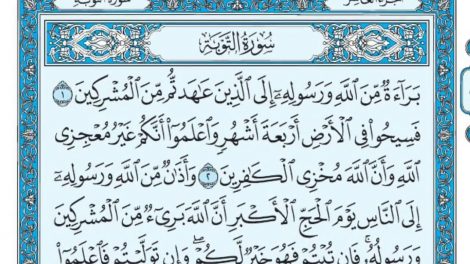 سُورَةُ التَّوْبَةِ
بَرَآءَةٌ مِّنَ ٱللَّهِ وَرَسُولِهِۦٓ إِلَى ٱلَّذِينَ عَٰهَدتُّم مِّنَ ٱلْمُشْرِكِينَ ١
فَسِيحُوا۟ فِى ٱلْأَرْضِ أَرْبَعَةَ أَشْهُرٍ وَٱعْلَمُوٓا۟ أَنَّكُمْ غَيْرُ مُعْجِزِى
ٱللَّهِ وَأَنَّ ٱللَّهَ مُخْزِى ٱلْكَٰفِرِينَ ٢ وَأَذَٰنٌ مِّنَ ٱللَّهِ وَرَسُولِهِۦٓ
إِلَى ٱلنَّاسِ يَوْمَ ٱلْحَجِّ ٱلْأَكْبَرِ أَنَّ ٱللَّهَ بَرِىٓءٌ مِّنَ ٱلْمُشْرِكِينَ
وَرَسُولُهُۥ فَإِن تُبْتُمْ فَهُوَ خَيْرٌ لَّكُمْ وَإِن تَوَلَّيْتُمْ فَٱعْلَمُوٓا۟